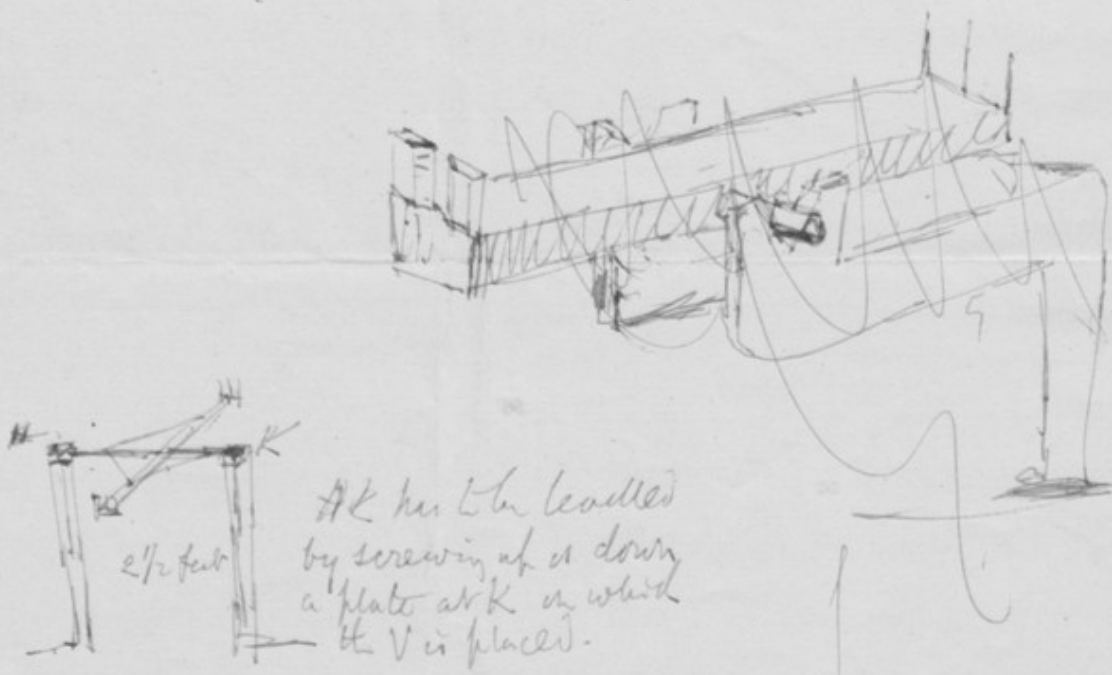 H
K
2 1/2 feet
HK has to be levelled
by screwing up or down
a plate at K on which
the V is placed.